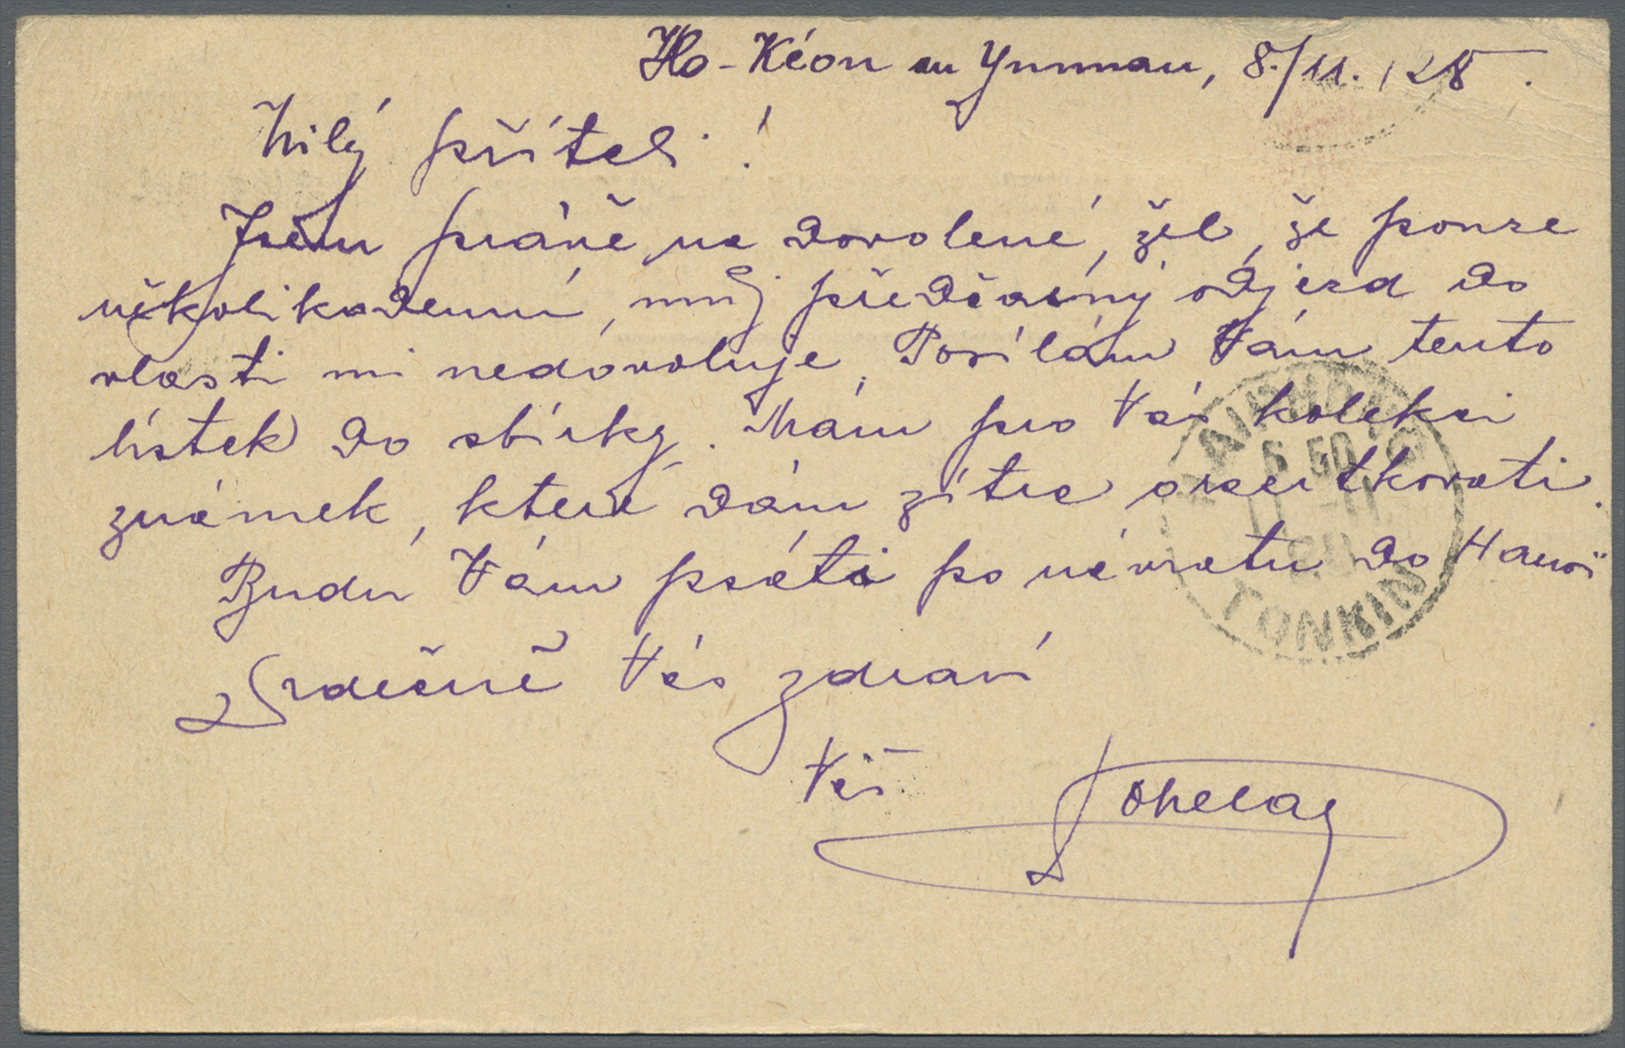 Ho-Kéou au Ynnnan, 8./11. 28.
Milý příteli!
Jsem právě na dovolené, žel, že pouze
několikadenní, můj předčasný odjezd do
vlasti mi nedovoluje. Posílám Vám tento
lístek do sbírky. Mám pro Vás kolekci
známek, které dám zítra orazítkovati.
Budu Vám psáti po návratu do Hanoï
Srdečně Vás zdraví
Váš
HAIPHONG
TONKIN